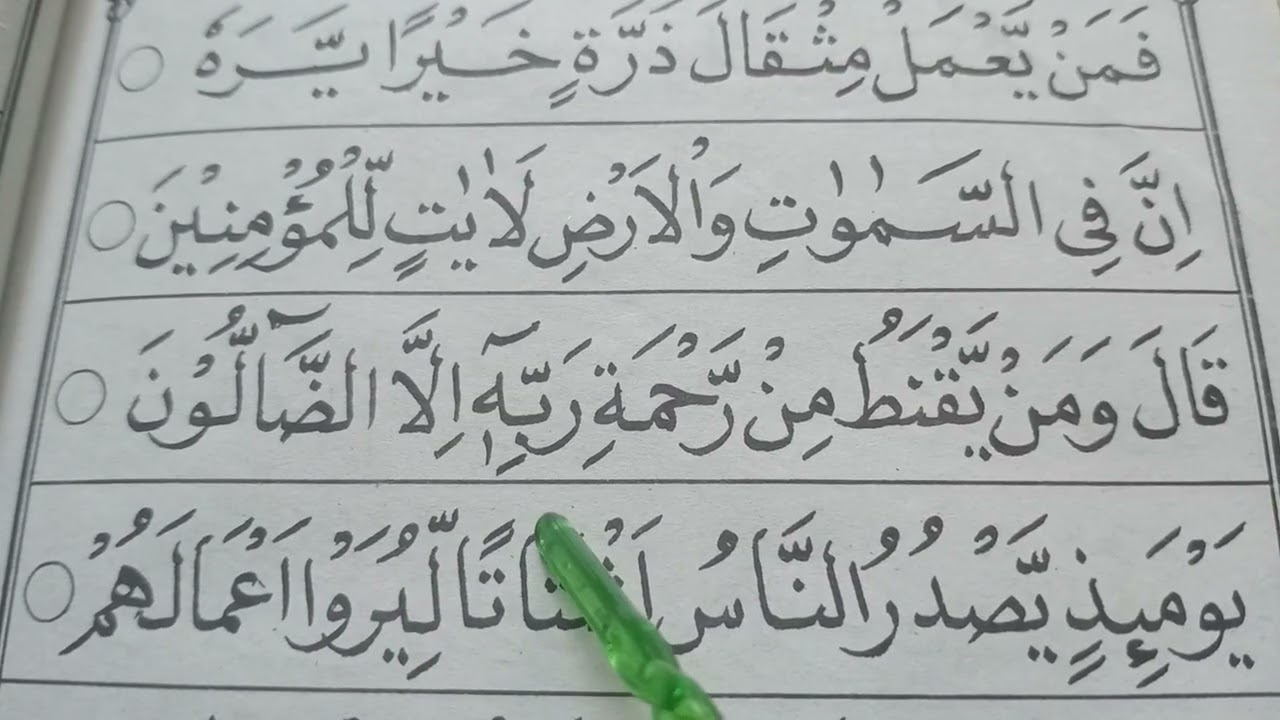 فَمَنْ يَّعْمَلْ مِثْقَالَ ذَرَّةٍ خَيْرًا يَّرَهٗ ○
اِنَّ فِى السَّمٰوٰتِ وَالْاَرْضِ لَاٰيٰتٍ لِّلْمُؤْمِنِيْنَ ○
قَالَ وَمَنْ يَّقْنَطُ مِنْ رَّحْمَةِ رَبِّهٖٓ اِلَّا الضَّآلُّوْنَ ○
يَوْمَئِذٍ يَّصْدُرُ النَّاسُ اَشْتَاتًا لِّيُرَوْا اَعْمَالَهُمْ ○